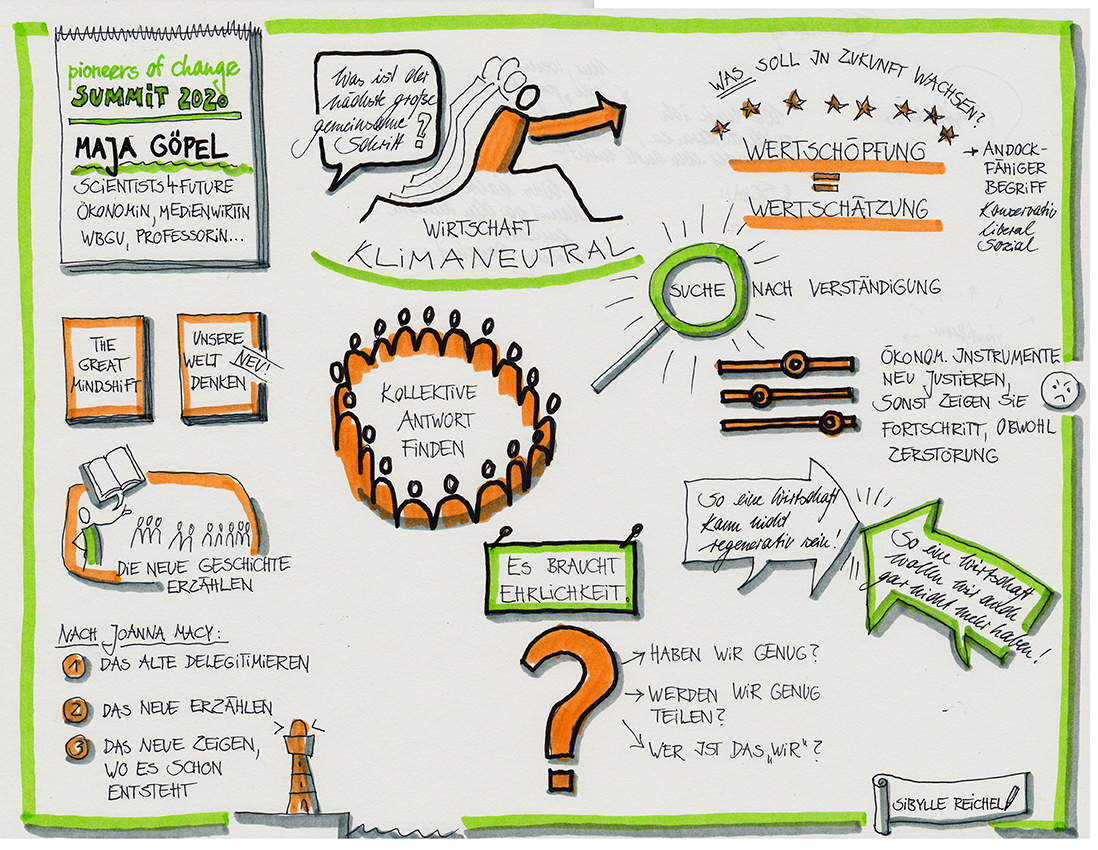 pioneers of change
SUMMIT 2020
MAJA GÖPEL
SCIENTISTS4FUTURE
ÖKONOMIN, MEDIENWIRTIN
WBGU, PROFESSORIN...
Was ist der
nächste große
gemeinsame
Schritt?
WIRTSCHAFT
KLIMANEUTRAL
WAS SOLL IN ZUKUNFT WACHSEN?
WERTSCHÖPFUNG
=
WERTSCHÄTZUNG
→ ANDOCK-
FÄHIGER
BEGRIFF
Konservativ
Liberal
Sozial
SUCHE NACH VERSTÄNDIGUNG
THE
GREAT
MINDSHIFT
UNSERE
WELT
NEU!
DENKEN
KOLLEKTIVE
ANTWORT
FINDEN
ÖKONOM. INSTRUMENTE
NEU JUSTIEREN,
SONST ZEIGEN SIE
FORTSCHRITT, OBWOHL
ZERSTÖRUNG
DIE NEUE GESCHICHTE
ERZÄHLEN
So eine Wirtschaft
kann nicht
regenerativ sein!
So eine Wirtschaft
wollen wir auch
gar nicht mehr haben!
ES BRAUCHT
EHRLICHKEIT.
NACH JOANNA MACY:
1 DAS ALTE DELEGITIMIEREN
2 DAS NEUE ERZÄHLEN
3 DAS NEUE ZEIGEN,
WO ES SCHON
ENTSTEHT
?
→ HABEN WIR GENUG?
→ WERDEN WIR GENUG
TEILEN?
→ WER IST DAS „WIR"?
SIBYLLE REICHEL